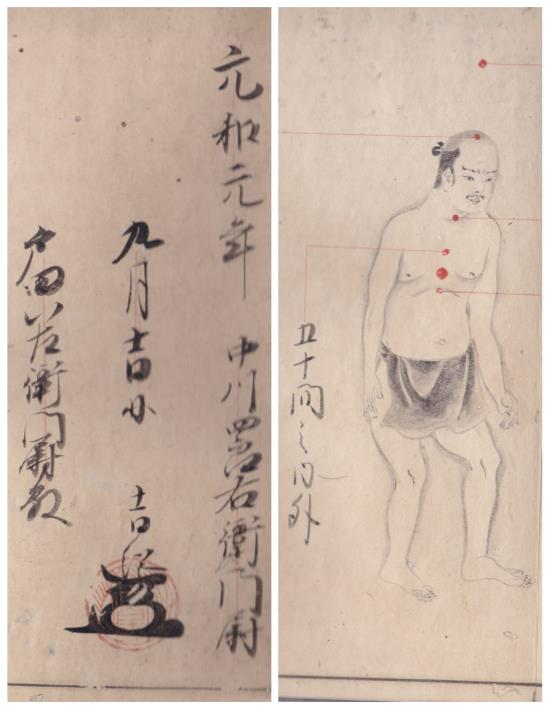 五十間之内外
元和元年 中川右衛門尉
九月吉日 吉
戸田八左衛門尉殿